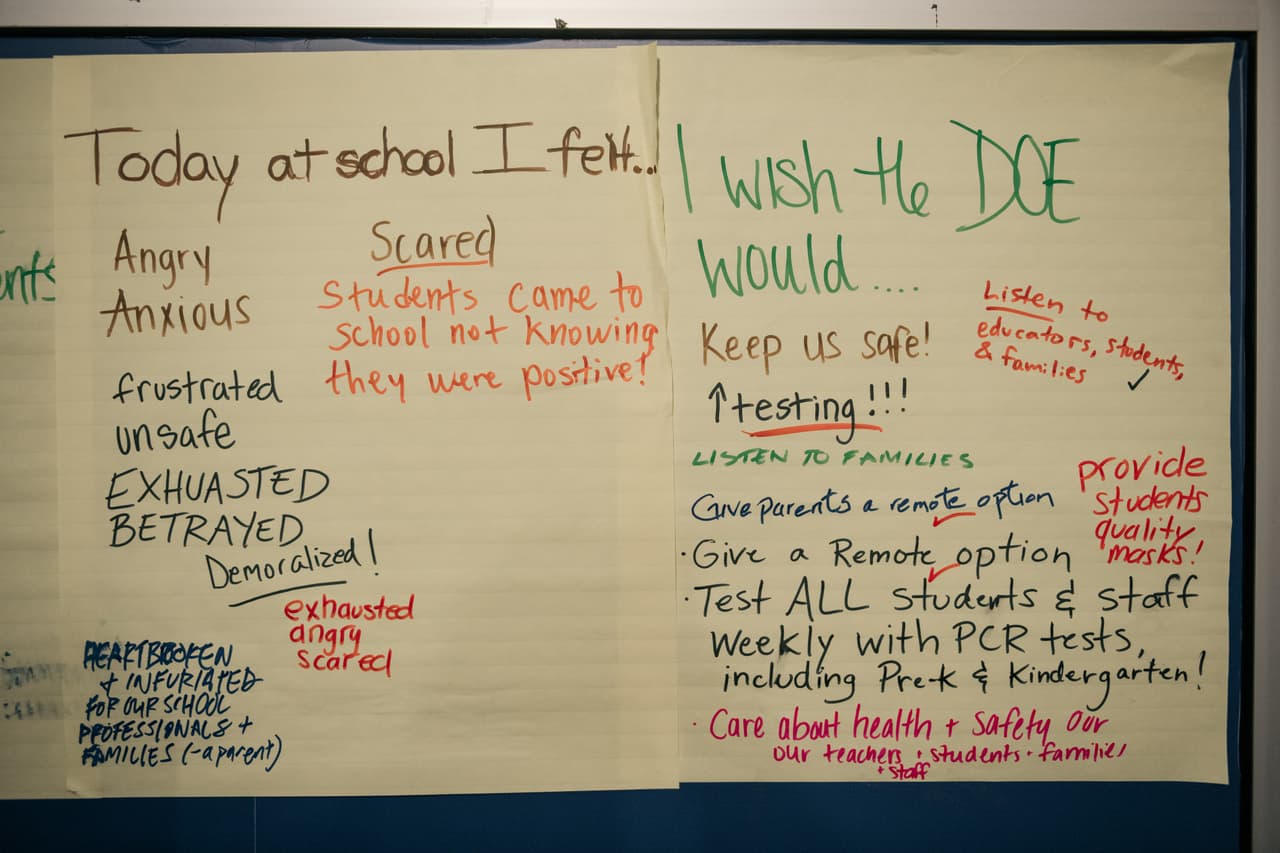 Today at school I felt...
Angry
Anxious
frustrated
unsafe
EXHUASTED
BETRAYED
Demoralized!
Scared
Students came to
school not knowing
they were positive!
exhausted
angry
scared
HEARTBROKEN
+ INFURIATED
FOR OUR SCHOOL
PROFESSIONALS +
FAMILIES (-a parent)
I wish the DOE
would....
Keep us safe!
↑testing!!!
Listen to
educators, students,
& families ✓
LISTEN TO FAMILIES
Give parents a remote option
provide
students
quality
masks!
· Give a Remote option
· Test ALL students & staff
weekly with PCR tests,
including Pre-K & Kindergarten!
· Care about health + safety our
our teachers + students + families
+ staff